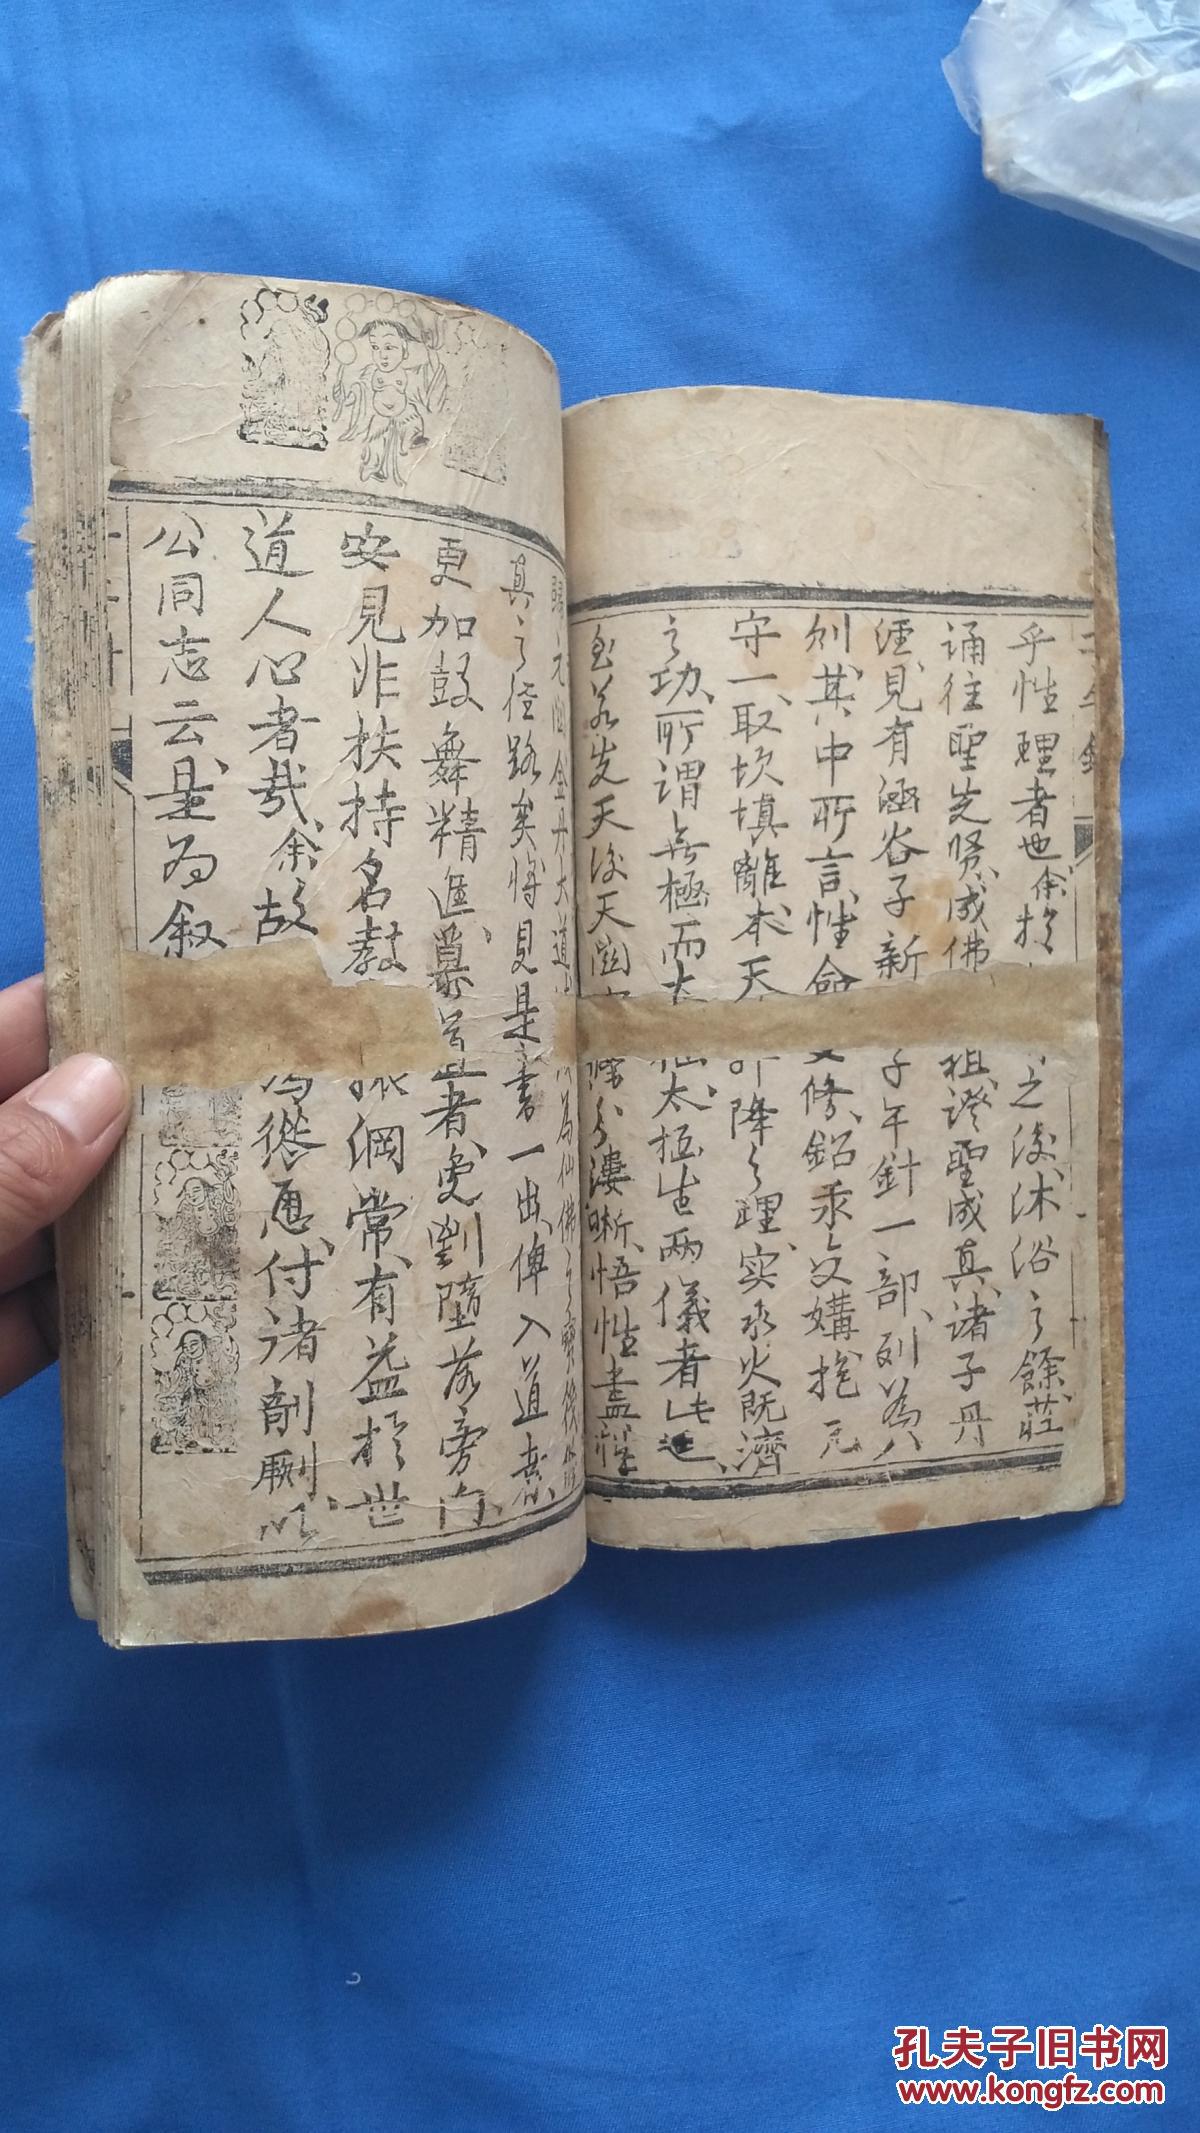 子午針
乎性理者也余於之後沐浴之餘莊
誦往聖先賢成佛祖證聖成真諸子丹
經見有涵谷子新子午針一部列為八
則其中所言性命雙修鉛汞交媾抱元
守一取坎填離本天升降之理实水火既濟
之功所謂無極而太極太極生两儀者此也
至若先天後天図陰分縷晰悟性盡性
歸元金丹大道為仙佛之
真之徑路矣將見是書一出俾入道者
更加鼓舞精進慕道者免劉墮落旁门
安見非扶持名教振綱常有益於世
道人心者哉余故為慫恿付諸剞劂以
公同志云是为叙
孔夫子旧书网
www.kongfz.com